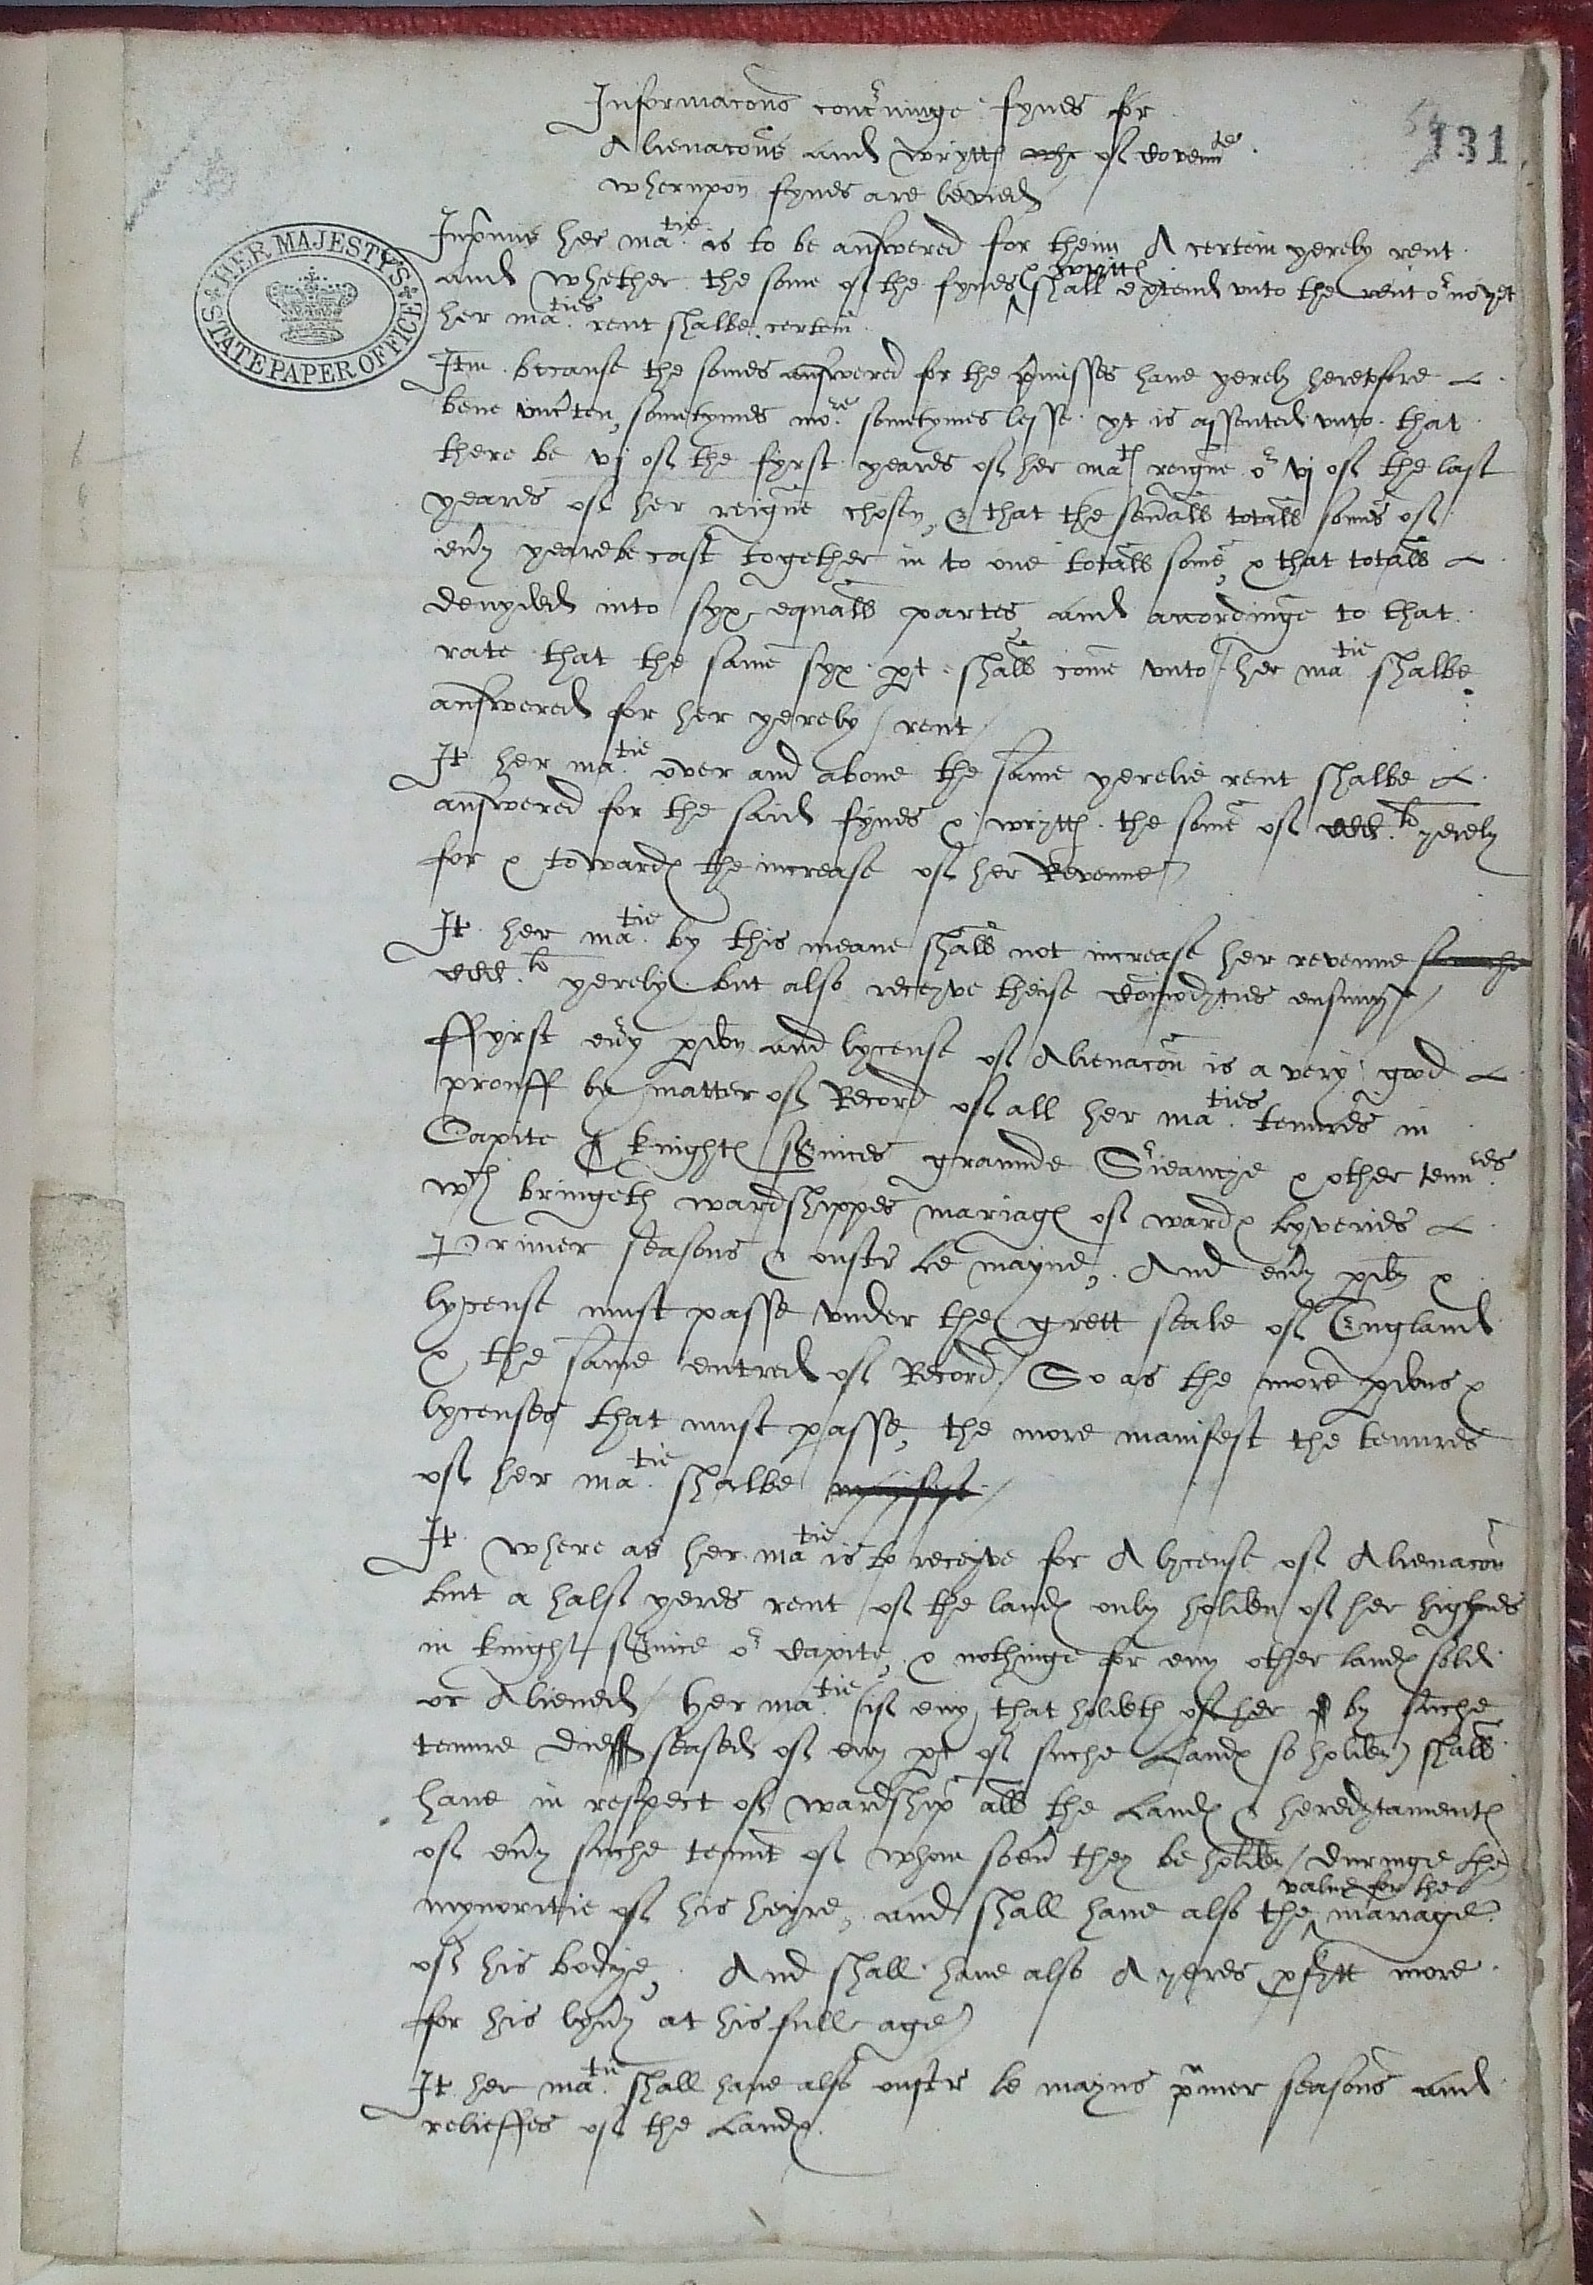 Informacons concninge fynes for
Alienacons and wrytts of covennte
wherupon fynes are levied
131
HER MAJESTY'S STATE PAPER OFFICE
Inprimis her matie is to be answered for theim A certein yerely rent
and whether the some of the fynes & wrytts shall extend unto the rent or no yet
her maties rent shalbe certein
Itm because the somes answered for the pmisses have yerely heretofore
bene uncten, sometymes more sometymes lesse yt is assented unto that
there be vj of the fyrst yeares of her mats reigne or vj of the last
yeares of her reigne chosen, & that the sevall totall somes of
evy yeare be cast together in to one totall some, & that totall
devyded into syx equall partes and accordinge to that
rate that the same syx pt shall come unto her matie shalbe
answered for her yerely rent
It her matie over and above the same yerelie rent shalbe
answered for the said fynes & wrytts the some of CCC li yerely
for & towards the increase of her Revenue
It her matie by this meane shall not increase her revenue
CCC li yerely but also receyve theise comodyties ensuinge
ffyrst evy pdon and lycense of Alienacon is a very good
prouff by matter of Record of all her maties tenures in
Capite knights svices graunde Sieantye & other tenures
wch bringeth wardshippes mariags of wards lyveries
Primer seasons & ouster le mayne, And evy pdon &
lycense must passe under the grett seale of England
& the same entred of Record So as the more pdons &
lycenses that must passe, the more manifest the tenures
of her matie shalbe
It where as her matie is to receyve for A lycense of Alienacon
but a half yeres rent of the lands only holden of her highnes
in knight svice or Capite, & nothinge for eny other lands sold
or Aliened Her matie (if eny that holdeth of her by suche
tenure dieth seased of eny pt of suche Lands so holden) shall
have in respect of wardship all the Lands & heredytaments
of evy suche tennt of whom soev they be holden duringe the
mynoritie of his heyre, and shall have also the value for the mariage
of his bodye, And shall have also A yeres pfytt more
for his lyvy at his full age
It her matie shall have also ouster le mayns pmer seasons and
relieffes of the Lands